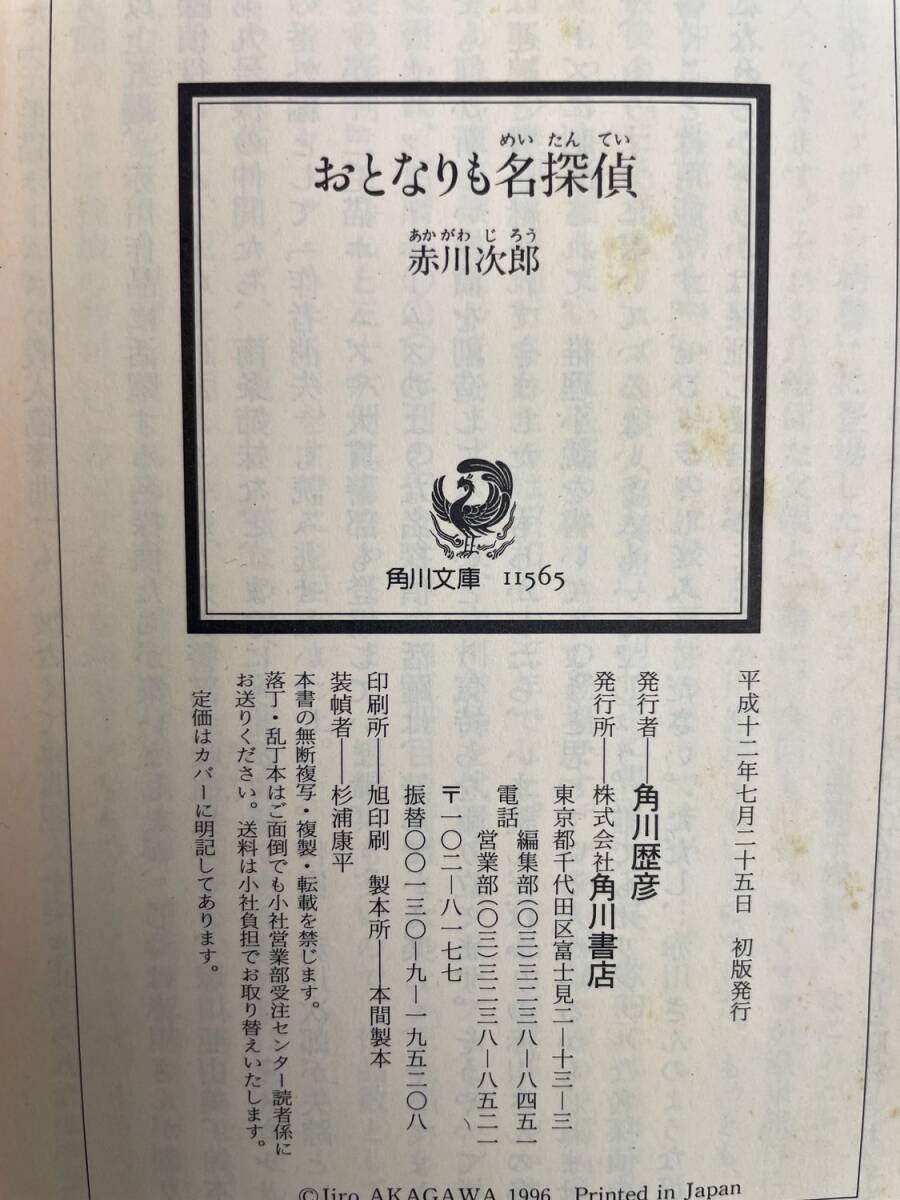 めいたんてい
おとなりも名探偵
あかがわじろう
赤川次郎
角川文庫 11565
平成十二年七月二十五日 初版発行
発行者――角川歴彦
発行所――株式会社角川書店
東京都千代田区富士見二―十三―三
電話
編集部(〇三)三二三八―八四五一
営業部(〇三)三二三八―八五二一
〒一〇二―八一七七
振替〇〇一三〇―九―一九五二〇八
印刷所――旭印刷 製本所――本間製本
装幀者――杉浦康平
本書の無断複写・複製・転載を禁じます。
落丁・乱丁本はご面倒でも小社営業部受注センター読者係に
お送りください。送料は小社負担でお取り替えいたします。
定価はカバーに明記してあります。
©Jiro AKAGAWA 1996 Printed in Japan